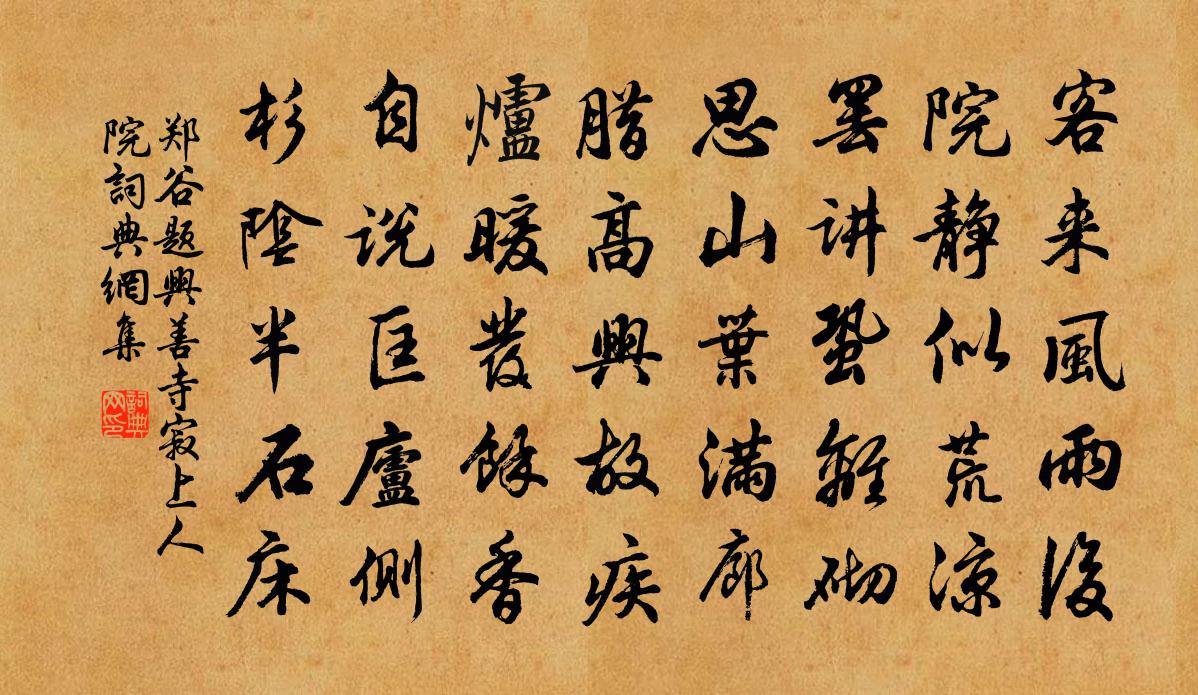 客来風雨後
院静似荒涼
罢讲蛩離砌
思山葉滿廊
腊高興故疾
爐暖發餘香
自说匡廬側
杉陰半石床
郑谷题興善寺寂上人
院詞典網集
詞典网印